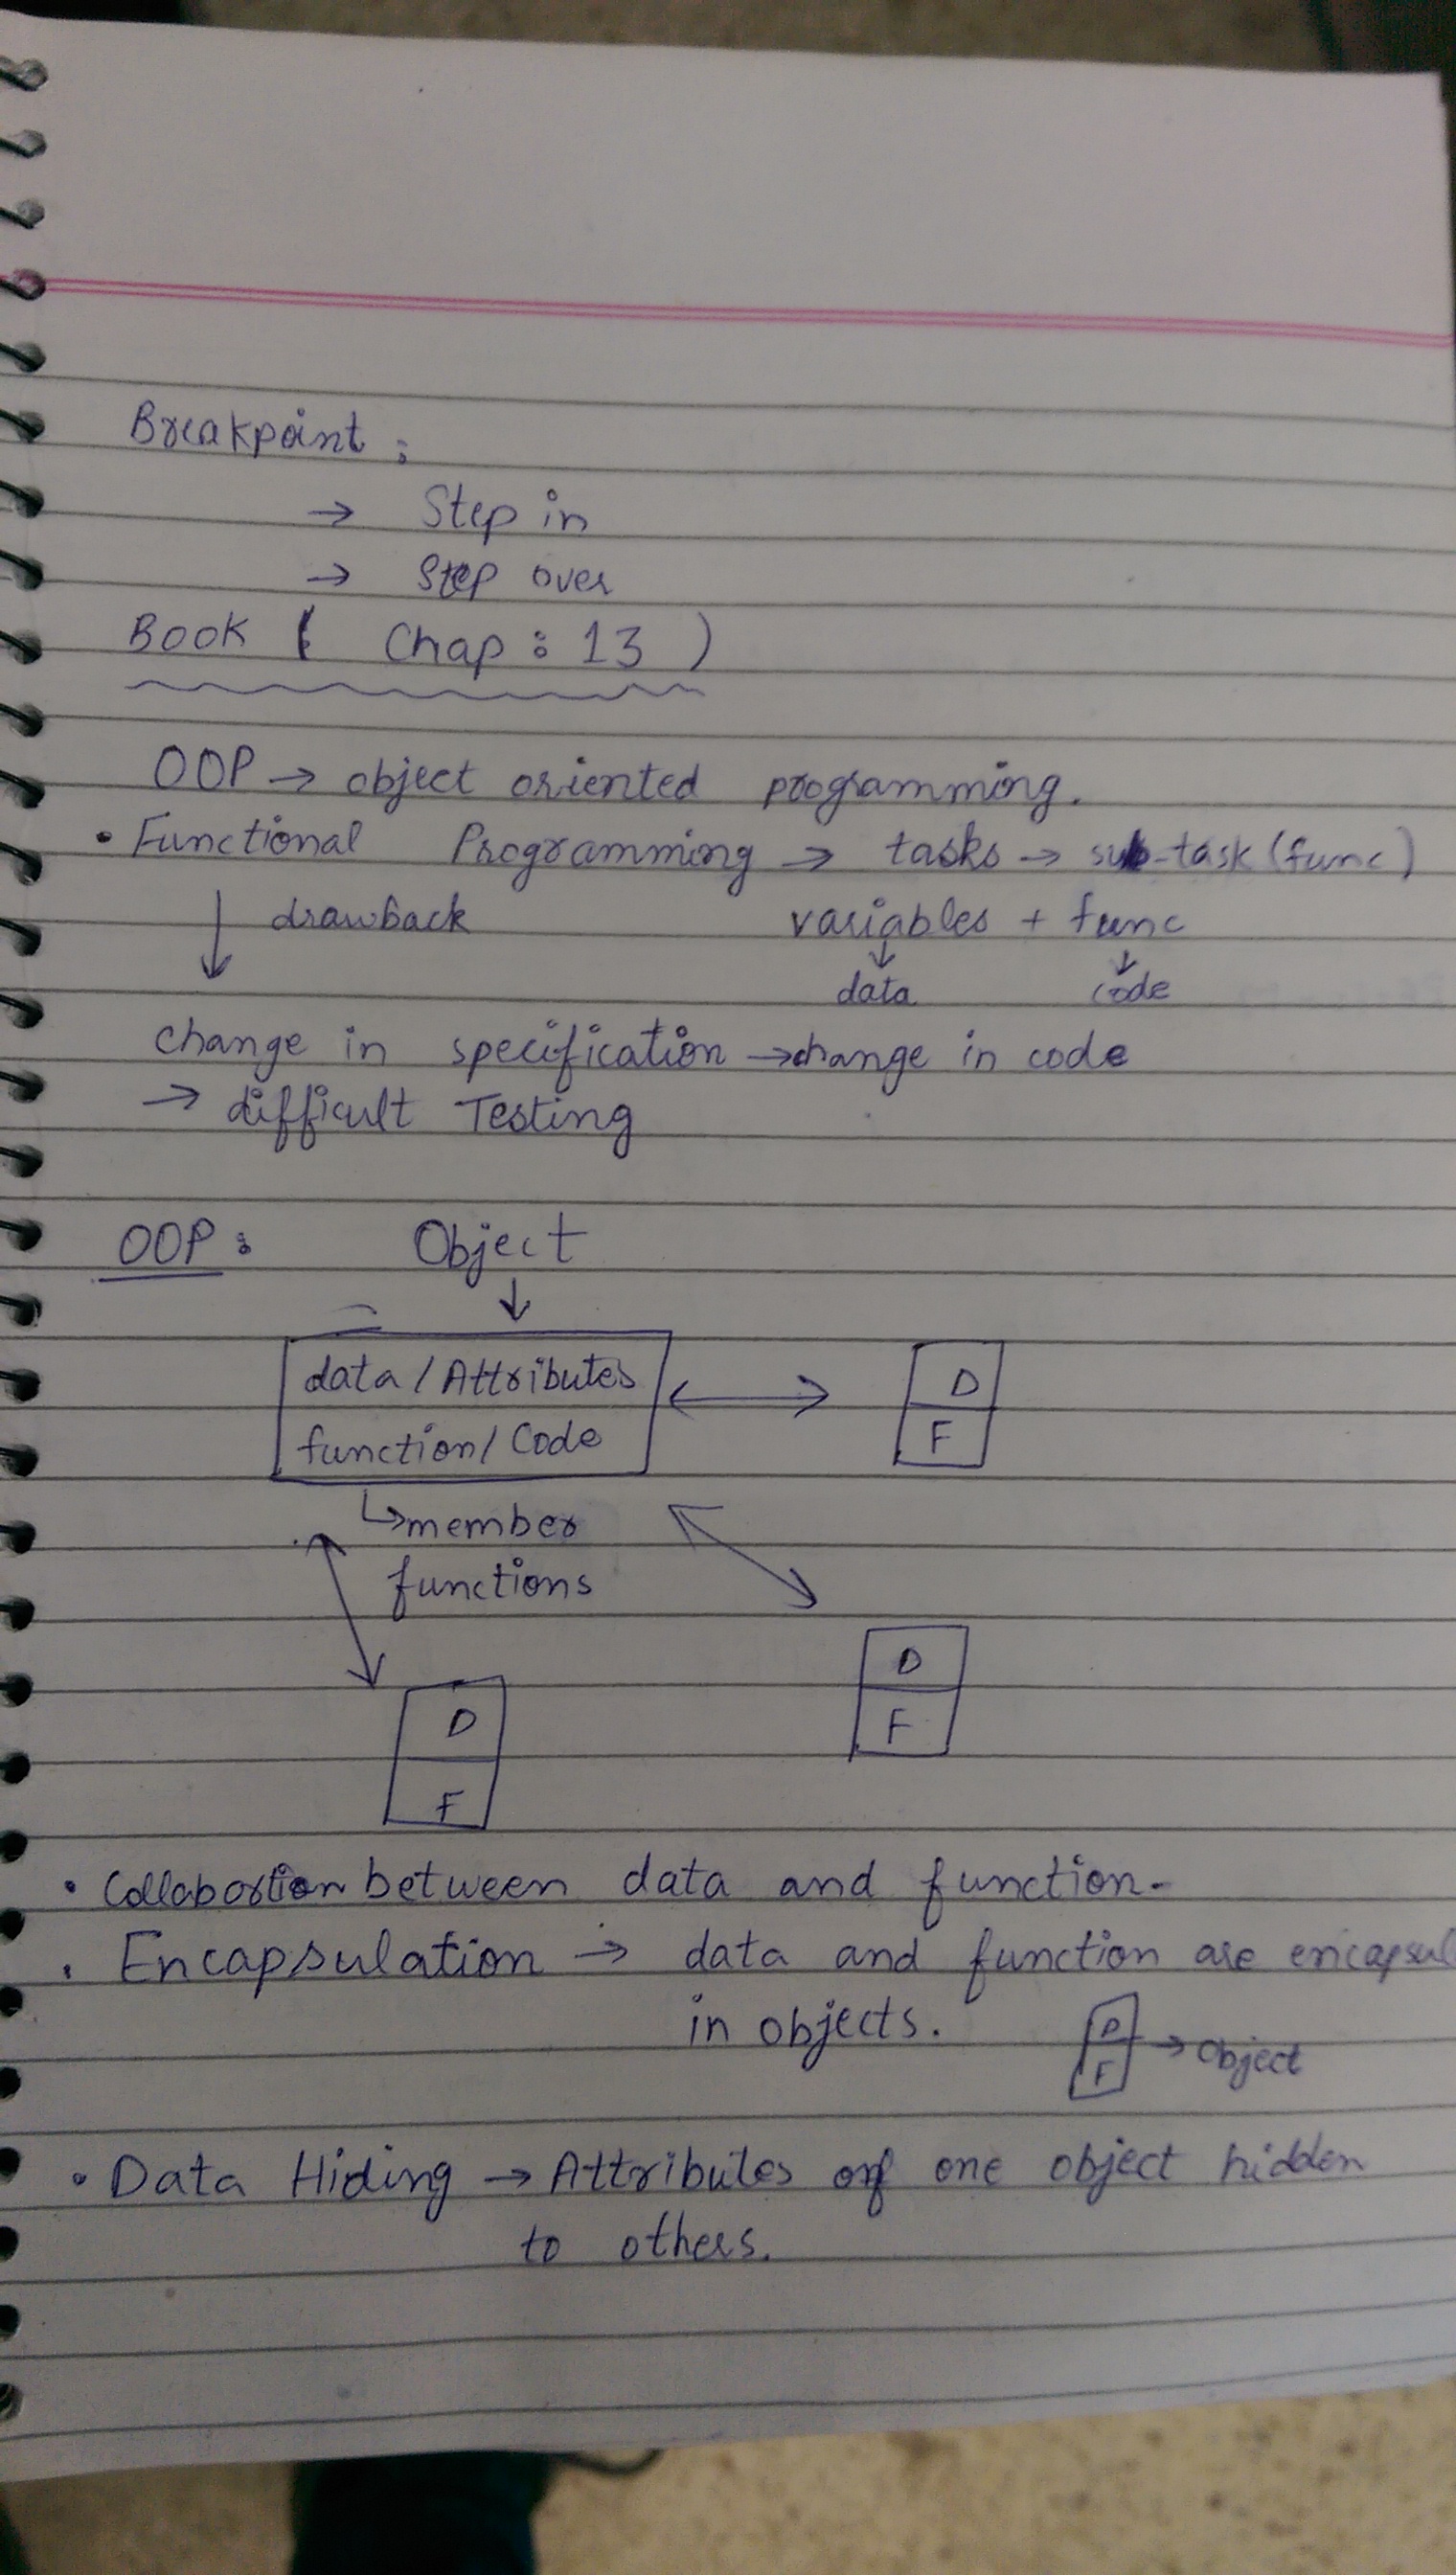 Breakpoint :
→ Step in
→ Step over
BOOK ( Chap : 13 )
OOP → object oriented programming.
• Functional Programming → tasks → sub-task (func)
↓ drawback variables + func
↓ ↓
data code
change in specification → change in code
→ difficult Testing
OOP : Object
↓
data / Attributes
function / Code
D
F
↳ member
functions
D
F
D
F
• Collabortion between data and function.
• Encapsulation → data and function are encapsul
in objects.
D
F → Object
• Data Hiding → Attributes of one object hidden
to others.